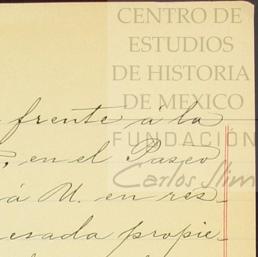 CENTRO DE
ESTUDIOS
DE HISTORIA
DE MEXICO
FUNDACIÓN
Carlos Slim
frente á la
en el Paseo
á U. en res-
esada propie-